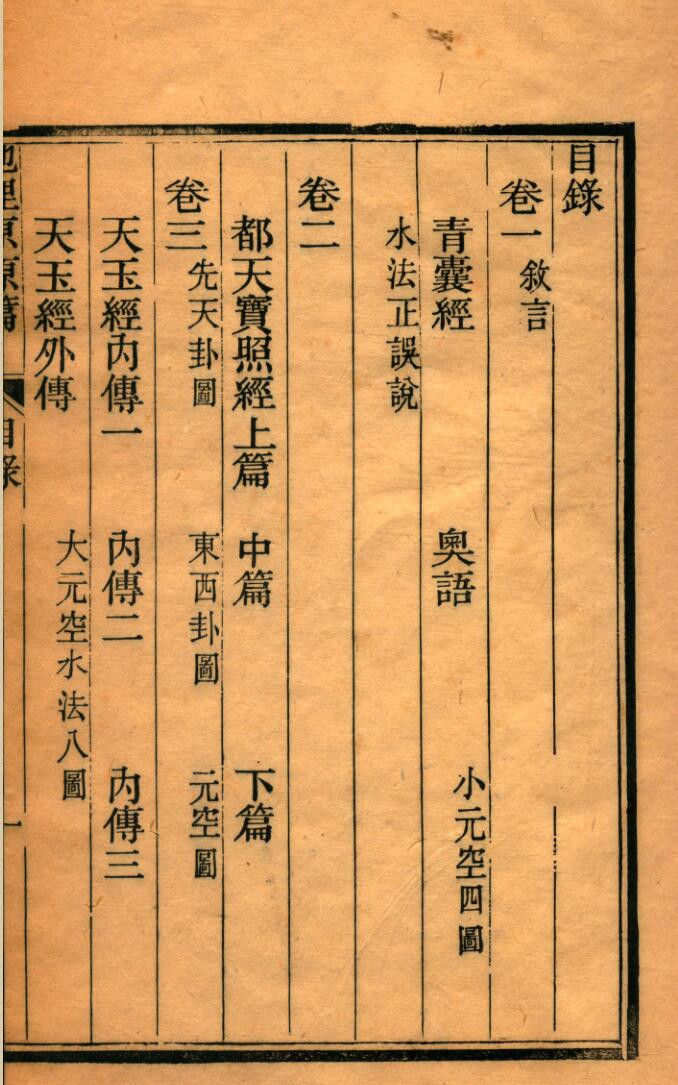 目錄
卷一 敘言
青囊經 奧語 小元空四圖
水法正誤說
卷二
都天寶照經上篇 中篇 下篇
卷三 先天卦圖 東西卦圖 元空圖
天玉經內傳一 內傳二 內傳三
天玉經外傳 大元空水法八圖
目錄 一